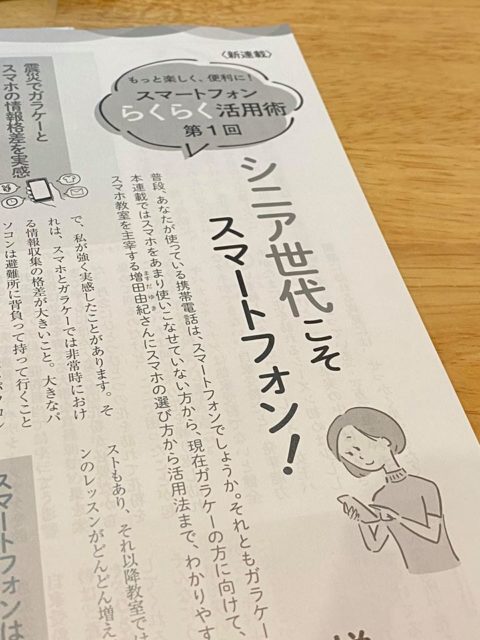 〈新連載〉
もっと楽しく、便利に！
スマートフォン
らくらく活用術
第1回
シニア世代こそ
スマートフォン！
普段、あなたが使っている携帯電話は、スマートフォンでしょうか。それともガラケー
本連載ではスマホをあまり使いこなせていない方から、現在ガラケーの方に向けて、
スマホ教室を主宰する増田由紀さんにスマホの選び方から活用法まで、わかりやす
ますだゆき
震災でガラケーと
スマホの情報格差を実感
で、私が強く実感したことがあります。そ
れは、スマホとガラケーでは非常時におけ
る情報収集の格差が大きいこと。大きなパ
ソコンは避難所に背負って持って行くこと
ストもあり、それ以降教室では
ンのレッスンがどんどん増え
スマートフォンは